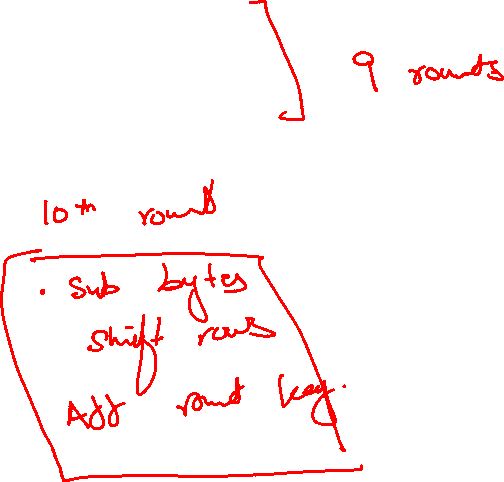 9 rounds
10th round
. Sub bytes
Shift rows
Add round key.